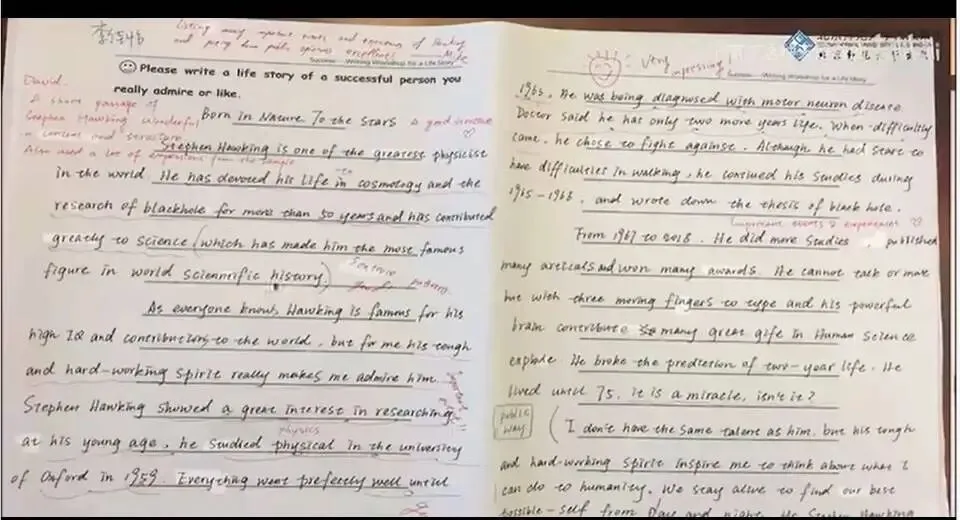 Listing many important events and experiences of Hawking
and
excellent!
Success Writing Workshop for a Life Story
Please write a life story of a successful person you
really admire or like.
David.
A share passage of
Stephen Hawking wonderful
in content and structure
Also used a lot of expressions from the sample
Born in Nature To the Stars
A good
Stephen Hawking is one of the greatest physicist
in the world He has devoted his life in cosmology and the
to
research of blackhole for more than 50 years and has contributed
greatly to science (which has made him the most famous
figure in world sciennrific history)
Sentence
pattern
As everyone knows Hawking is famous for his
high IQ and contributions to the world, but for me his tough
and hard-working spirit really makes me admire him.
important
Stephen Hawking showed a great interest in researching
at his young age, he studied physical in the university
physics
of Oxford in 1959. Everything went prefectly well until
Very
impressing!
Success Writing Workshop for a Life Story
1963. He was being diagnosed with motor neuron disease
Doctor said he has only two more years life. When difficultly
came, he chose to fight against. Although he had start to
have difficulties in walking, he continued his studies during
1965-1966, and wrote down the thesis of black hole.
important events & experiences
From 1967 to 2018. He did more studies, published
many articals and won many awards. He cannot talk or move
but with three moving fingers to type and his powerful
brain contribute many great gife in Human Science
explode. He broke the prediction of two-year life. He
lived until 75, it is a miracle, isn't it?
public
way
(I don't have the same talent as him, but his tough
and hard-working spirit inspire me to think about what I
can do to humanity. We stay alive to find our best
possible-self from Day and night. Stephen Hawking